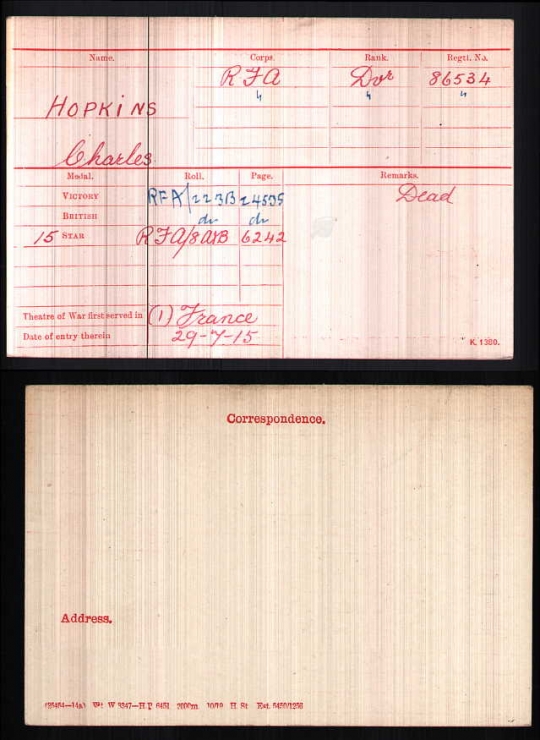 Name. Corps. Rank. Regtl. No.
RFA Dvr 86534
" " "
HOPKINS
Charles
Medal. Roll. Page. Remarks.
VICTORY RFA/223B 24595 Dead
BRITISH do do
15 STAR RFA/8A&B 6242
Theatre of War first served in (1) France
Date of entry therein 29-7-15
K. 1380.
Correspondence.
Address.
W 3347—H P 2000m 10/19 H St